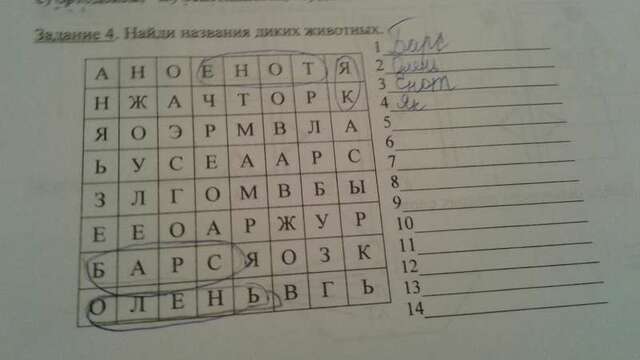 Задание 4. Найди названия диких животных.
А Н О Е Н О Т Я
Н Ж А Ч Т О Р К
Я О Э Р М В Л А
Ь У С Е А А Р С
З Л Г О М В Б Ы
Е Е О А Р Ж У Р
Б А Р С Я О З К
О Л Е Н Ь В Г Ь
1 Барс
2 Олень
3 Енот
4 Як
5
6
7
8
9
10
11
12
13
14